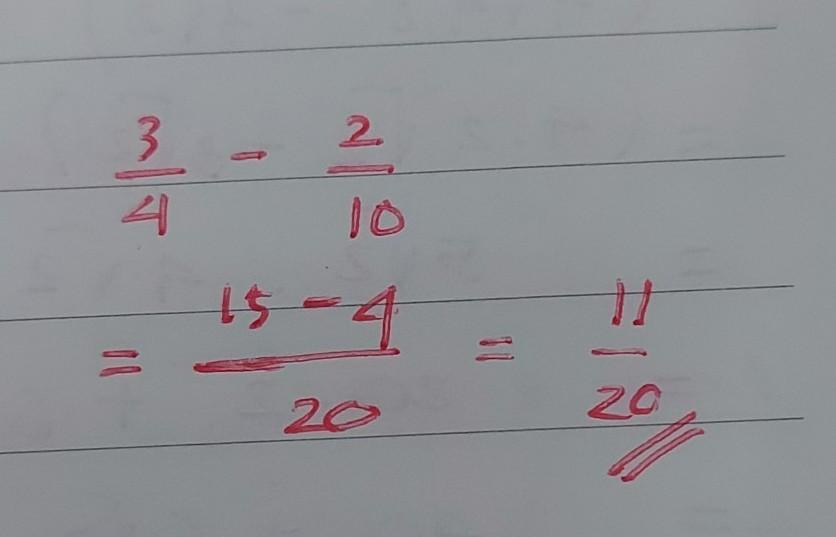 3/4 - 2/10
= (15 - 4)/20 = 11/20